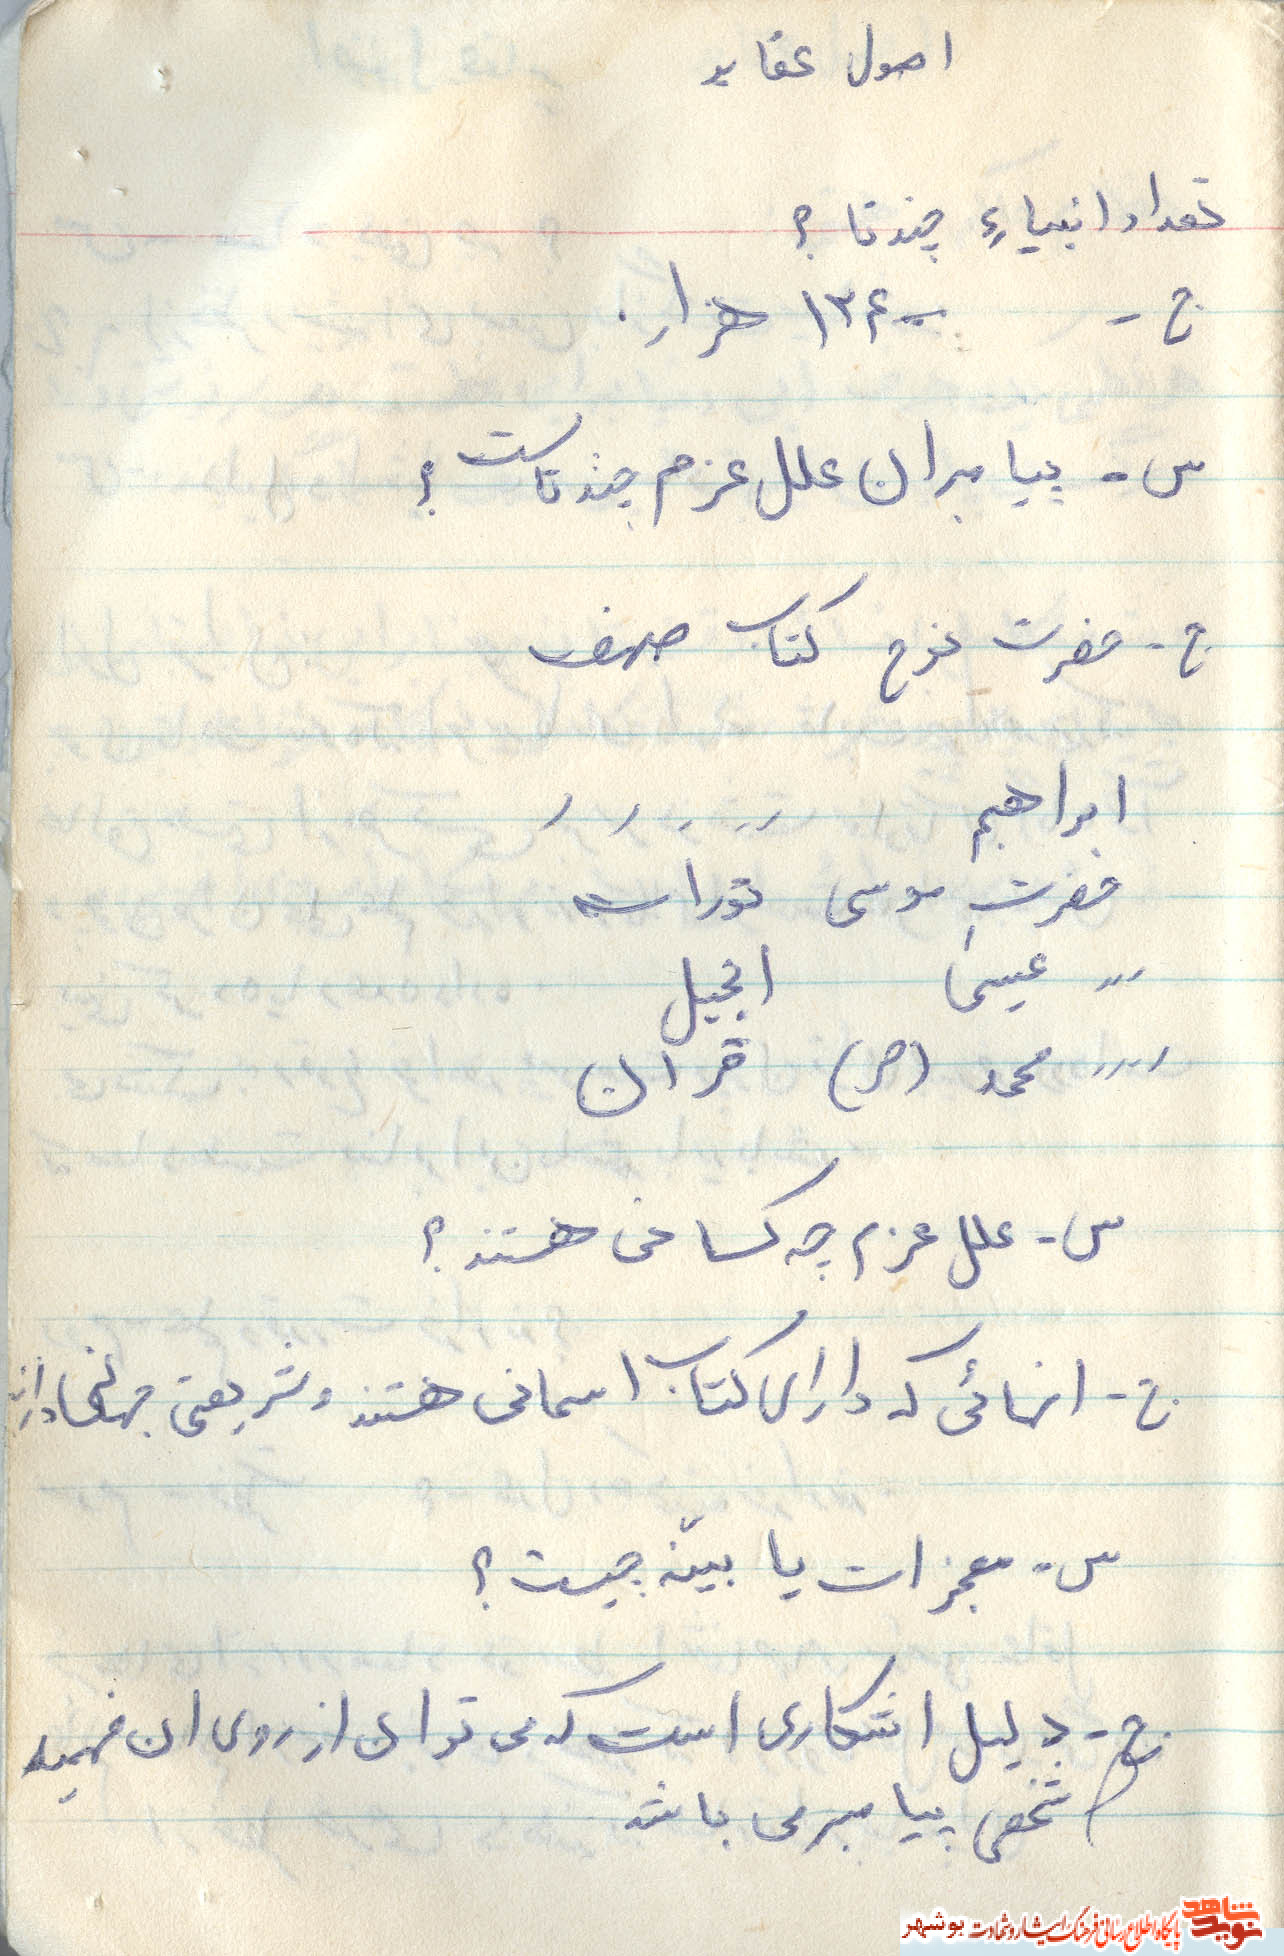 اصول عقاید
تعداد انبیاءِ چندتا ؟
ج - ۱۲۴۰۰۰ هزار .
س - پیامبران علل عزم چندتاست ؟
ج - حضرت نوح کتاب صحف
ابراهیم
حضرت موسی تورات
عیسی انجیل
محمد (ص) قران
س - علل عزم چه کسانی هستند ؟
ج - انهائی که دارای کتاب اسمانی هستند و شریعتی جهانی دارند
س - معجزات یا بیّنه چیست ؟
ج - دلیل اشکاری است که می توان از روی ان فهمید
شخصی پیامبر می باشد
نوید شاهد پایگاه اطلاع رسانی فرهنگ ایثار و شهادت بوشهر